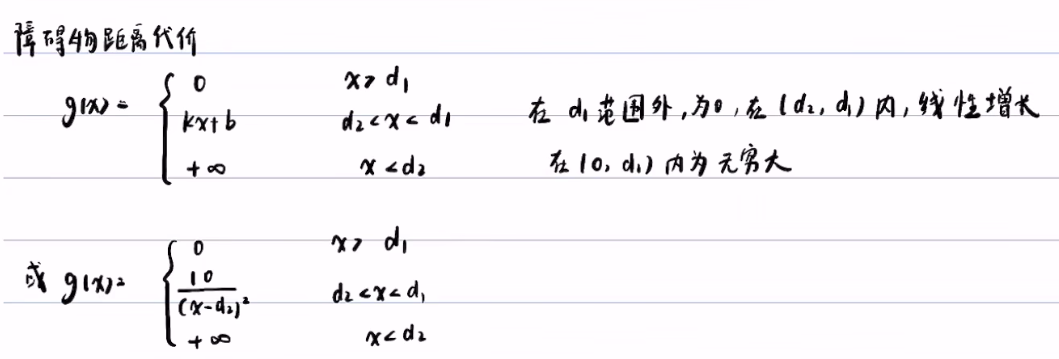 障碍物距离代价
g(x) = { 0 x > d₁
kx+b d₂<x<d₁ 在 d₁ 范围外,为0,在(d₂, d₁)内,线性增长
+∞ x<d₂ 在(0, d₁)内为无穷大
或 g(x)= { 0 x> d₁
10/(x-d₂)² d₂<x<d₁
+∞ x<d₂